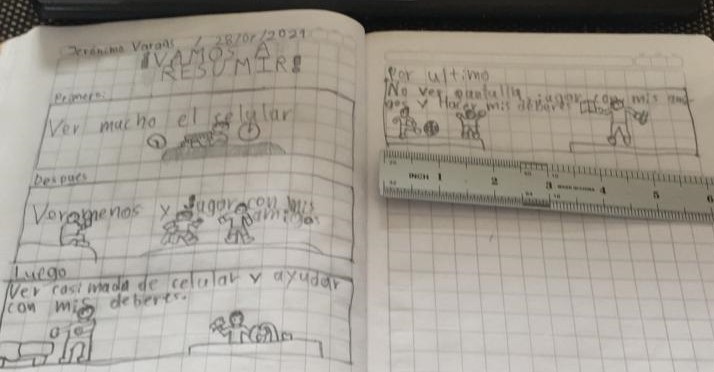 Jerónimo Vargas / 28/07/2021
¡VAMOS A
RESUMIR!
Primero:
Ver mucho el celular
Despues
Ver menos y Jugar con mis
amigos
Luego
Ver casi nada de celular y ayudar
con mis deberes.
Por ultimo
No ver pantalla, jugar con mis ami-
gos y Hacer mis deberes
INCH 1 2 3 4 5 6